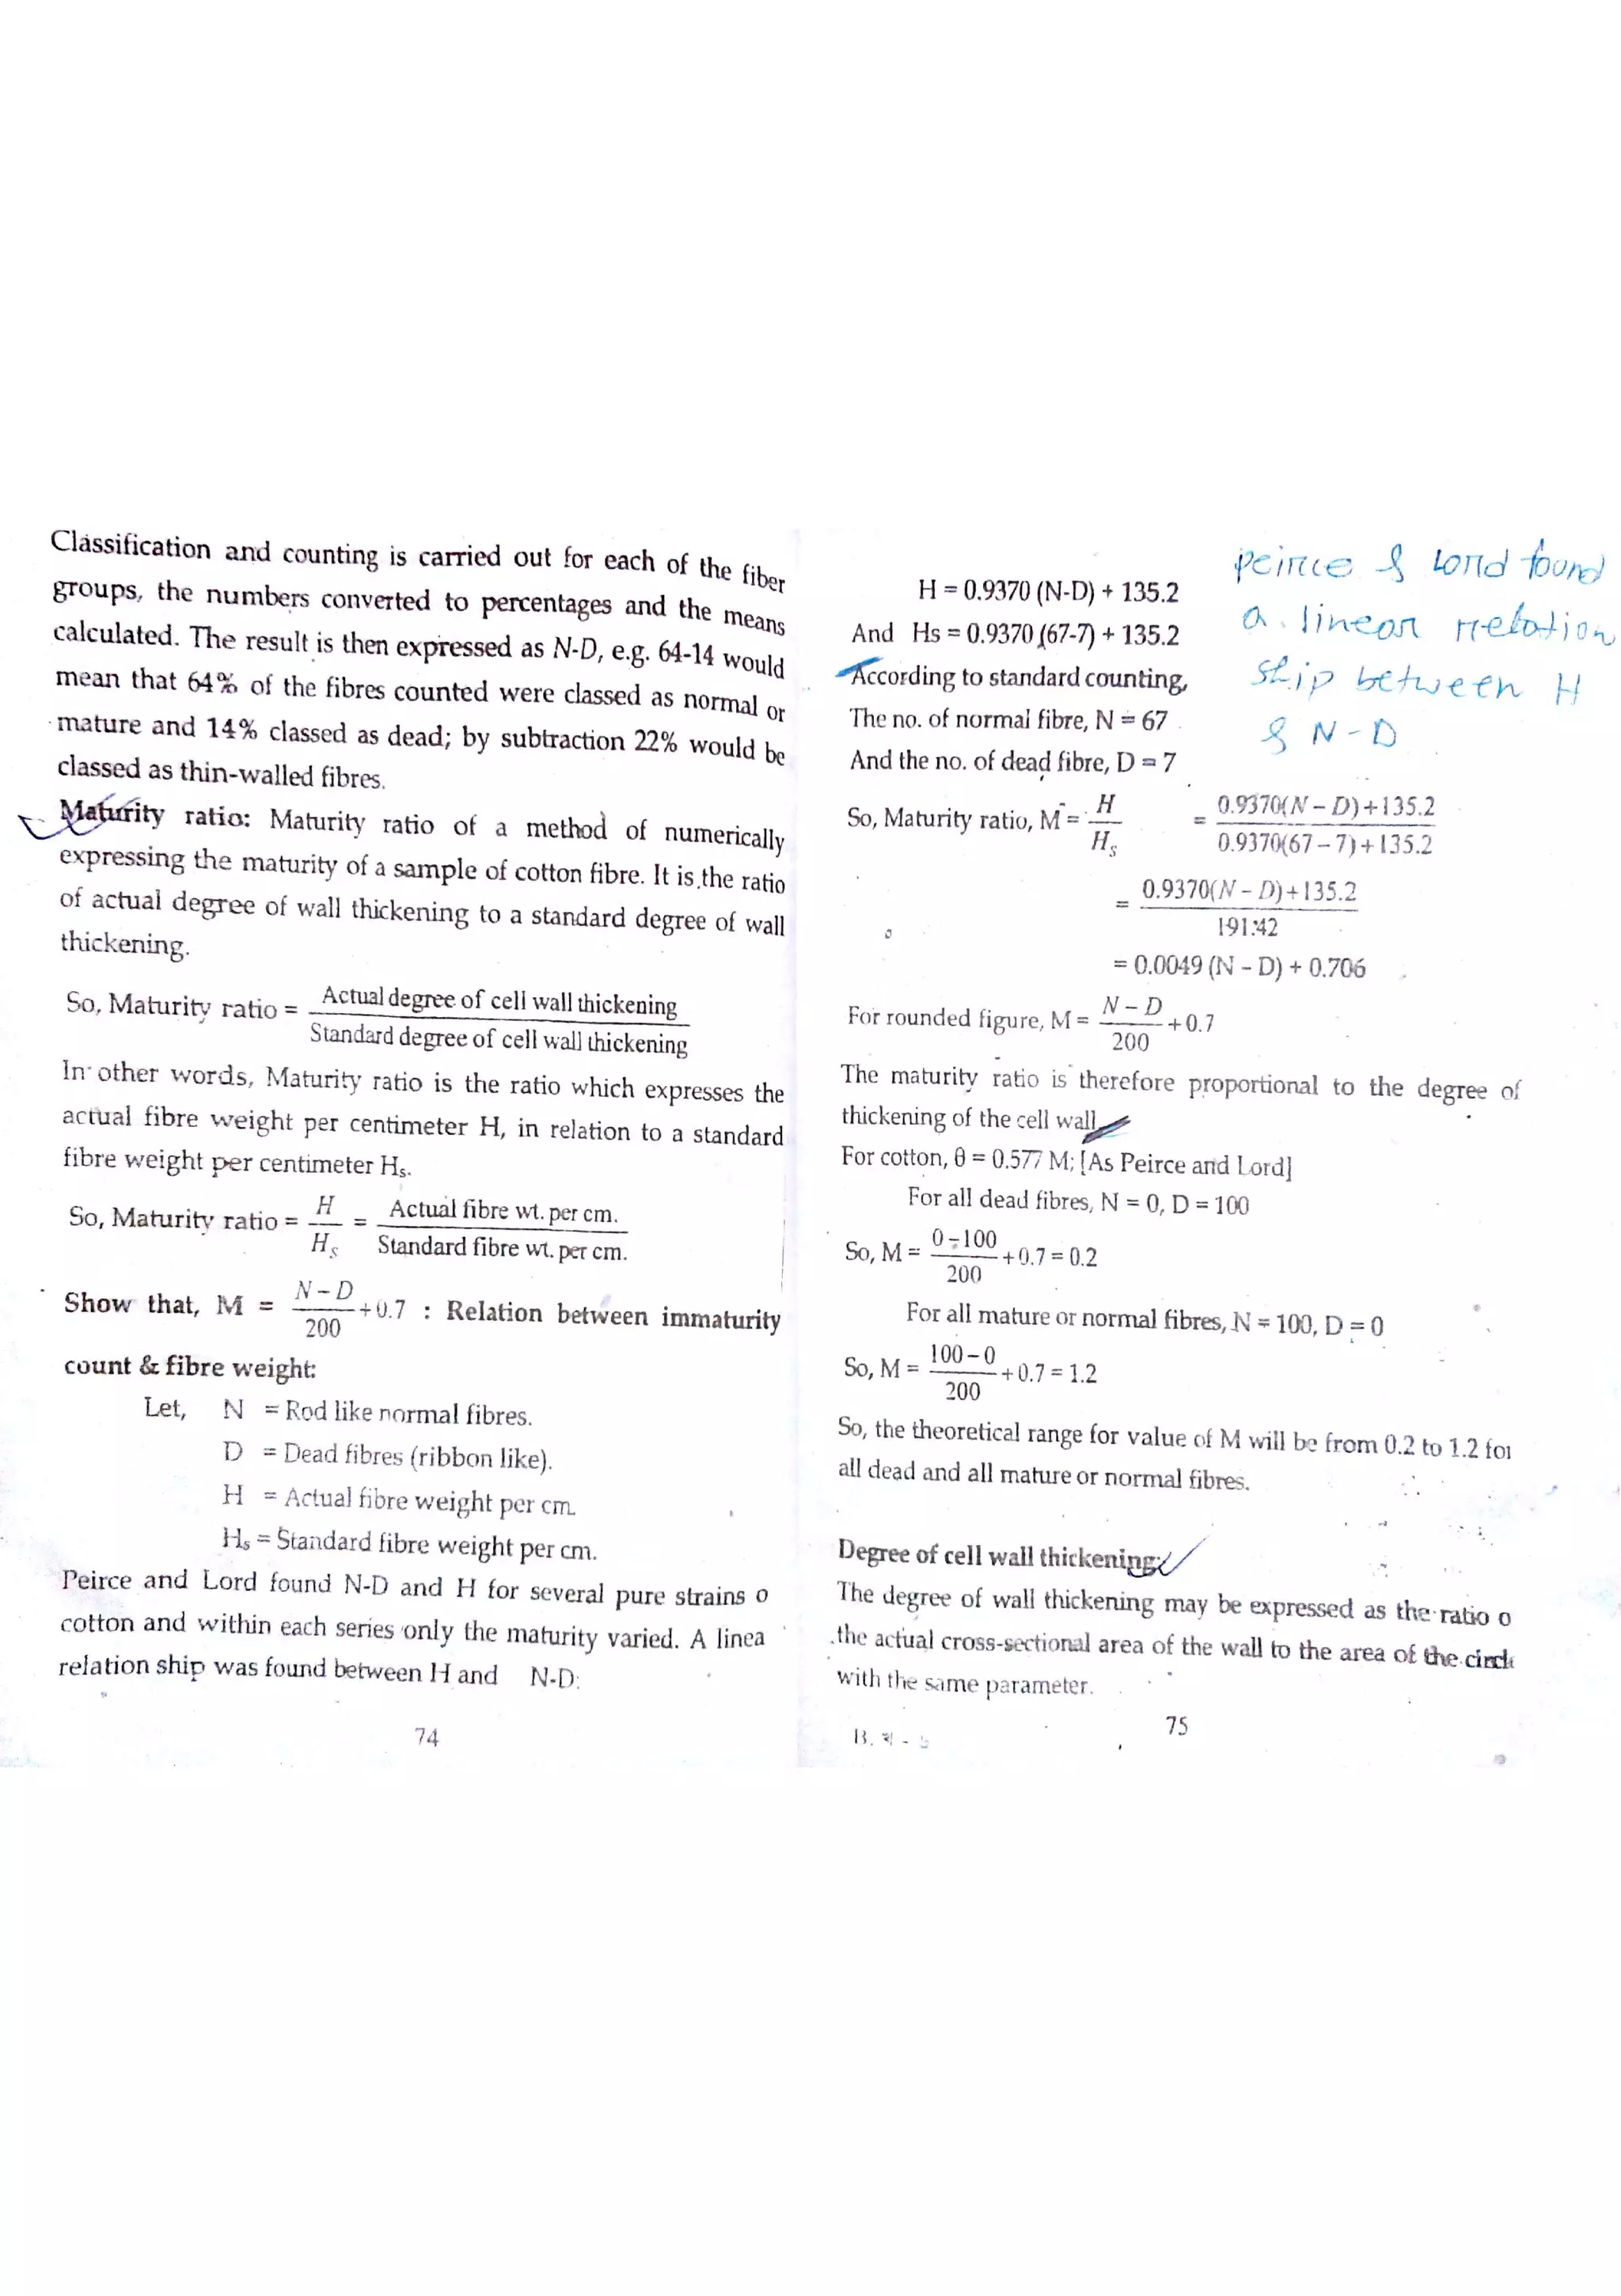 Classification and counting is carried out for each of the fiber
groups, the numbers converted to percentages and the means
calculated. The result is then expressed as N-D, e.g. 64-14 would
mean that 64% of the fibres counted were classed as normal or
mature and 14% classed as dead; by subtraction 22% would be
classed as thin-walled fibres.
Maturity ratio: Maturity ratio of a method of numerically
expressing the maturity of a sample of cotton fibre. It is the ratio
of actual degree of wall thickening to a standard degree of wall
thickening.
So, Maturity ratio = Actual degree of cell wall thickening
Standard degree of cell wall thickening
In other words, Maturity ratio is the ratio which expresses the
actual fibre weight per centimeter H, in relation to a standard
fibre weight per centimeter Hs.
So, Maturity ratio = H / Hs = Actual fibre wt. per cm.
Standard fibre wt. per cm.
Show that, M = N – D / 200 + 0.7 : Relation between immaturity
count & fibre weight:
Let, N = Rod like normal fibres.
D = Dead fibres (ribbon like).
H = Actual fibre weight per cm.
Hs = Standard fibre weight per cm.
Peirce and Lord found N-D and H for several pure strains o
cotton and within each series only the maturity varied. A linea
relation ship was found between H and N-D:
74
H = 0.9370 (N-D) + 135.2
And Hs = 0.9370 (67-7) + 135.2
According to standard counting,
The no. of normal fibre, N = 67
And the no. of dead fibre, D = 7
So, Maturity ratio, M = H / Hs = 0.9370(N – D)+135.2
0.9370(67 – 7)+135.2
= 0.9370(N – D)+135.2
191.42
= 0.0049 (N – D) + 0.706
For rounded figure, M = N – D / 200 + 0.7
The maturity ratio is therefore proportional to the degree of
thickening of the cell wall
For cotton, θ = 0.577 M; [As Peirce and Lord]
For all dead fibres, N = 0, D = 100
So, M = 0 – 100 / 200 + 0.7 = 0.2
For all mature or normal fibres, N = 100, D = 0
So, M = 100 – 0 / 200 + 0.7 = 1.2
So, the theoretical range for value of M will be from 0.2 to 1.2 for
all dead and all mature or normal fibres.
Degree of cell wall thickening:
The degree of wall thickening may be expressed as the ratio o
the actual cross-sectional area of the wall to the area of the circle
with the same parameter.
75
peirce & Lord found
a linear relation
ship between H
& N-D